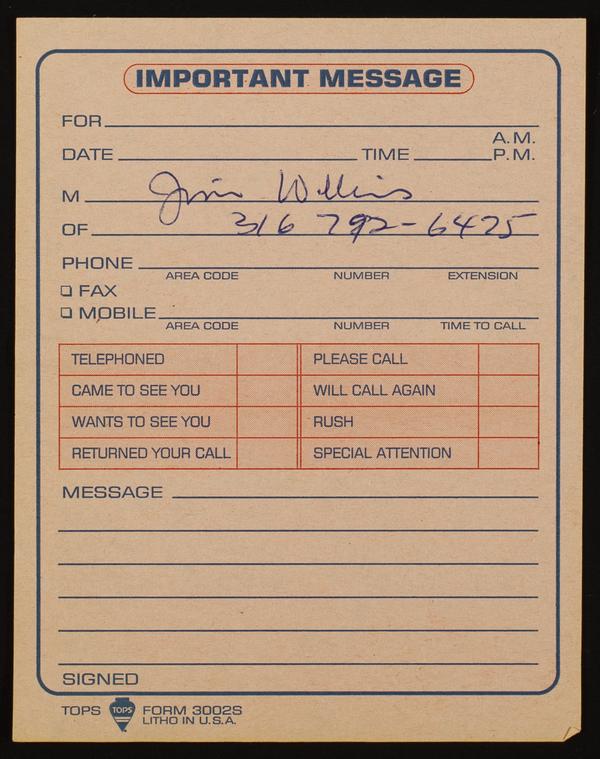 IMPORTANT MESSAGE
FOR
A.M.
DATE TIME P.M.
M Jim Willins
OF 316 792-6425
PHONE
AREA CODE NUMBER EXTENSION
☐ FAX
☐ MOBILE
AREA CODE NUMBER TIME TO CALL
TELEPHONED PLEASE CALL
CAME TO SEE YOU WILL CALL AGAIN
WANTS TO SEE YOU RUSH
RETURNED YOUR CALL SPECIAL ATTENTION
MESSAGE
SIGNED
TOPS TOPS FORM 3002S
LITHO IN U.S.A.